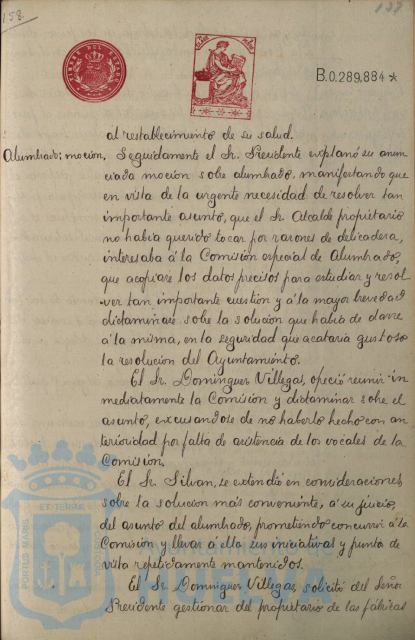 158.
B.0.289.884*
al restablecimiento de su salud.
Alumbrado; moción. Seguidamente el Sr. Presidente explanó su anun-
ciada moción sobe alumbrado, manifestando que
en vista de la urgente necesidad de resolver tan
importante asunto, que el Sr. Alcalde propietario
no habia querido tocar por razones de delicadeza,
interesaba á la Comisión especial de Alumbrado,
que acopiare los datos precisos para estudiar y resol-
ver tan importante cuestión y á la mayor brevedad
dictaminare sobe la solución que habia de darse
á la misma, en la seguridad que acataria gustoso
la resolución del Ayuntamiento.
El Sr. Dominguez Villegas, ofreció reunir in-
mediatamente la Comisión y dictaminar sobe el
asunto, excusandose de no haberlo hecho con an-
terioridad por falta de asistencia de los vocales de la
Comisión.
El Sr. Silvan, se extendió en consideraciones
sobe la solución más conveniente, á su juicio,
del asunto del alumbrado, prometiendo concurrir á la
Comisión y llevar á ella sus iniciativas y puntos de
vista repetidamente mantenidos.
El Sr. Dominguez Villegas, solicitó del Señor
Presidente gestionar del propietario de las fábricas